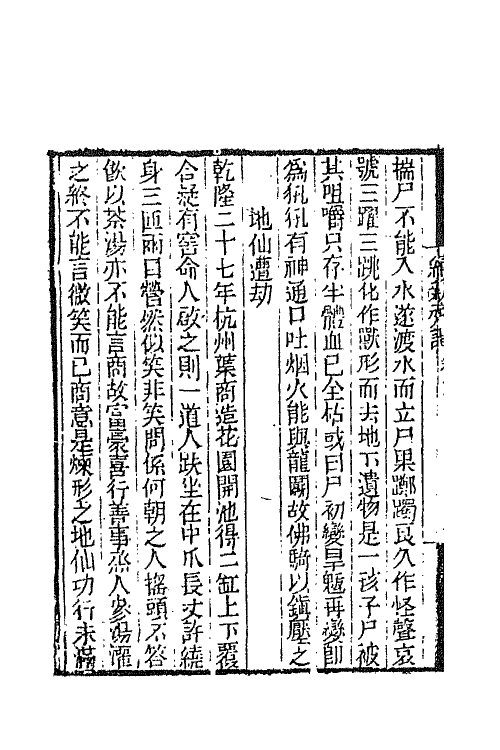 續新齊諧 卷
揣尸不能入水遂渡水而立尸果躑躅良久作怪聲哀
號三躍三跳化作獸形而去地下遺物是一孩子尸被
其咀嚼只存半體血已全枯或曰尸初變旱魃再變即
為犼犼有神通口吐烟火能與龍鬬故佛騎以鎮壓之
地仙遭劫
乾隆二十七年杭州葉商造花園開池得二缸上下覆
合疑有窖命人啟之則一道人趺坐在中爪長丈許繞
身三匝兩目瞥然似笑非笑問係何朝之人搖頭不答
飲以茶湯亦不能言商故富豪喜行善事烝人參湯灌
之終不能言微笑而已商意是煉形之地仙功行未滿